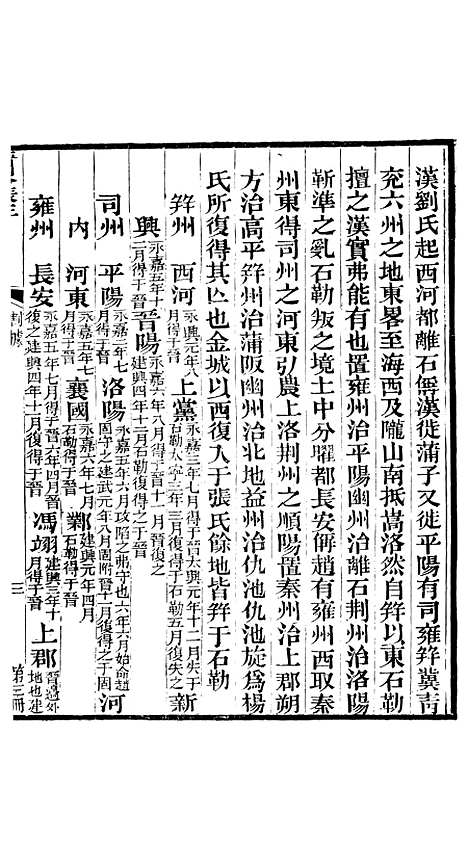 漢劉氏起西河都離石偁漢徙蒲子又徙平陽有司雍幷冀靑
兖六州之地東畧至海西及隴山南抵嵩洛然自幷以東石勒
擅之漢實弗能有也置雍州治平陽幽州治離石荆州治洛陽
靳準之亂石勒叛之境土中分曜都長安偁趙有雍州西取秦
州東得司州之河東弘農上洛荆州之順陽置秦州治上郡朔
方治高平幷州治蒲阪幽州治北地益州治仇池仇池旋爲楊
氏所復得其亾也金城以西復入于張氏餘地皆幷于石勒
幷州　西河永興元年八月得于晉　上黨永嘉三年七月得于晉太興元年十二月失于石勒太寧三年三月復得于石勒五月復失之　新
興永嘉五年十二月得于晉　晉陽永嘉六年八月得于晉十一月晉復之建興四年十二月石勒復得之于晉
司州　平陽永嘉二年七月得于晉　洛陽永嘉五年六月攻陷之弗守也六年六月始命趙固守之建武元年八月固附晉十一月復得之于固　河
內　河東永嘉五年七月得于晉　襄國永嘉六年七月石勒得于晉　鄴建興元年四月石勒得于晉
雍州　長安永嘉五年七月得于晉六年四月晉復之建興四年十一月復得于晉　馮翊建興三年十月得于晉　上郡晉邊外地也建
三　第三册